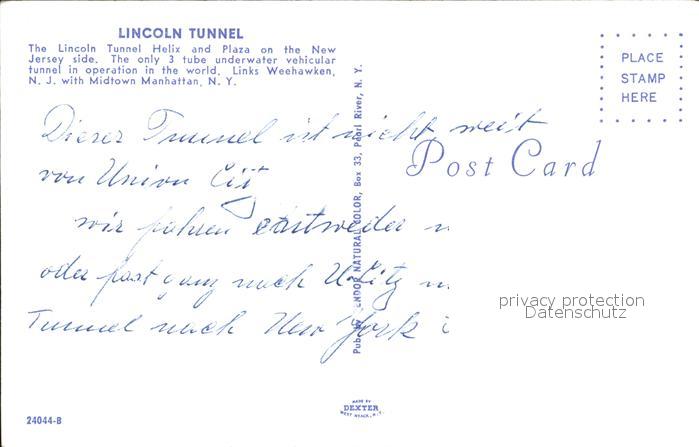 LINCOLN TUNNEL
The Lincoln Tunnel Helix and Plaza on the New
Jersey side. The only 3 tube underwater vehicular
tunnel in operation in the world, Links Weehawken,
N. J. with Midtown Manhattan, N. Y.
PLACE
STAMP
HERE
Post Card
Dieser Tunnel ist nicht weit
von Union City
wir fahren entweder
oder fast ganz nach U. City
Tunnel nach New York
Pub. by ENDOR NATURAL COLOR, Box 33, Pearl River, N. Y.
privacy protection
Datenschutz
24044-B
MADE BY
DEXTER
WEST NYACK, N.Y.